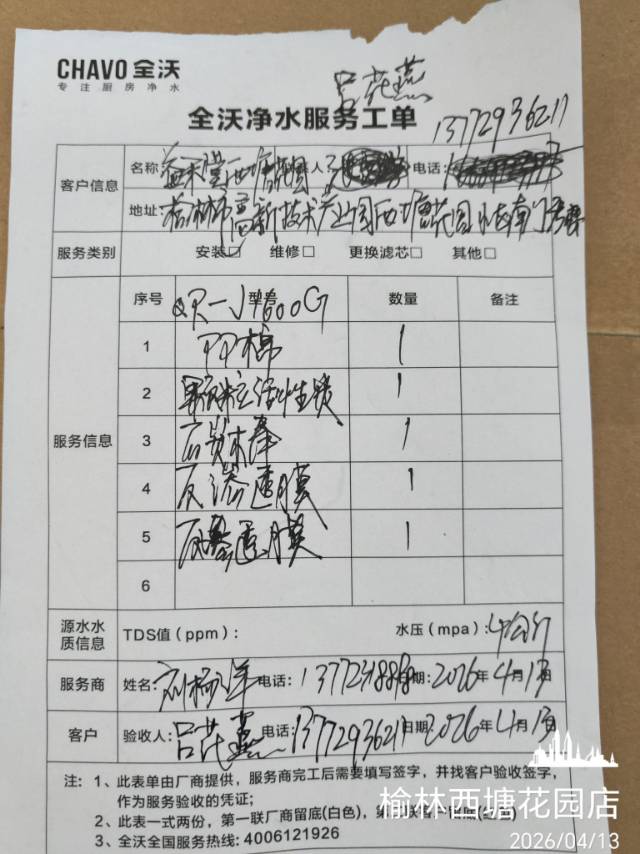 CHAVO 全沃
专注厨房净水
吕花燕
全沃净水服务工单
13772936217
客户信息 名称: 西塘花园 人: 电话:
地址: 榆林市高新技术产业园西塘花园小区南门
服务类别 安装□ 维修□ 更换滤芯□ 其他□
服务信息 序号 QR-J1600G 型号 数量 备注
1 PP棉 1
2 颗粒活性炭 1
3 后炭棒 1
4 反渗透膜 1
5 反渗透膜 1
6
源水水质信息 TDS值(ppm): 水压(mpa): 4公斤
服务商 姓名: 刘杨洋 电话: 日期: 2026年4月13日
客户 验收人: 吕花燕 电话: 13772936217 日期: 2026年4月13日
注: 1、此表单由厂商提供,服务商完工后需要填写签字,并找客户验收签字,
作为服务验收的凭证;
2、此表一式两份,第一联厂商留底(白色),第二联客户留底
3、全沃全国服务热线: 4006121926
榆林西塘花园店
2026/04/13